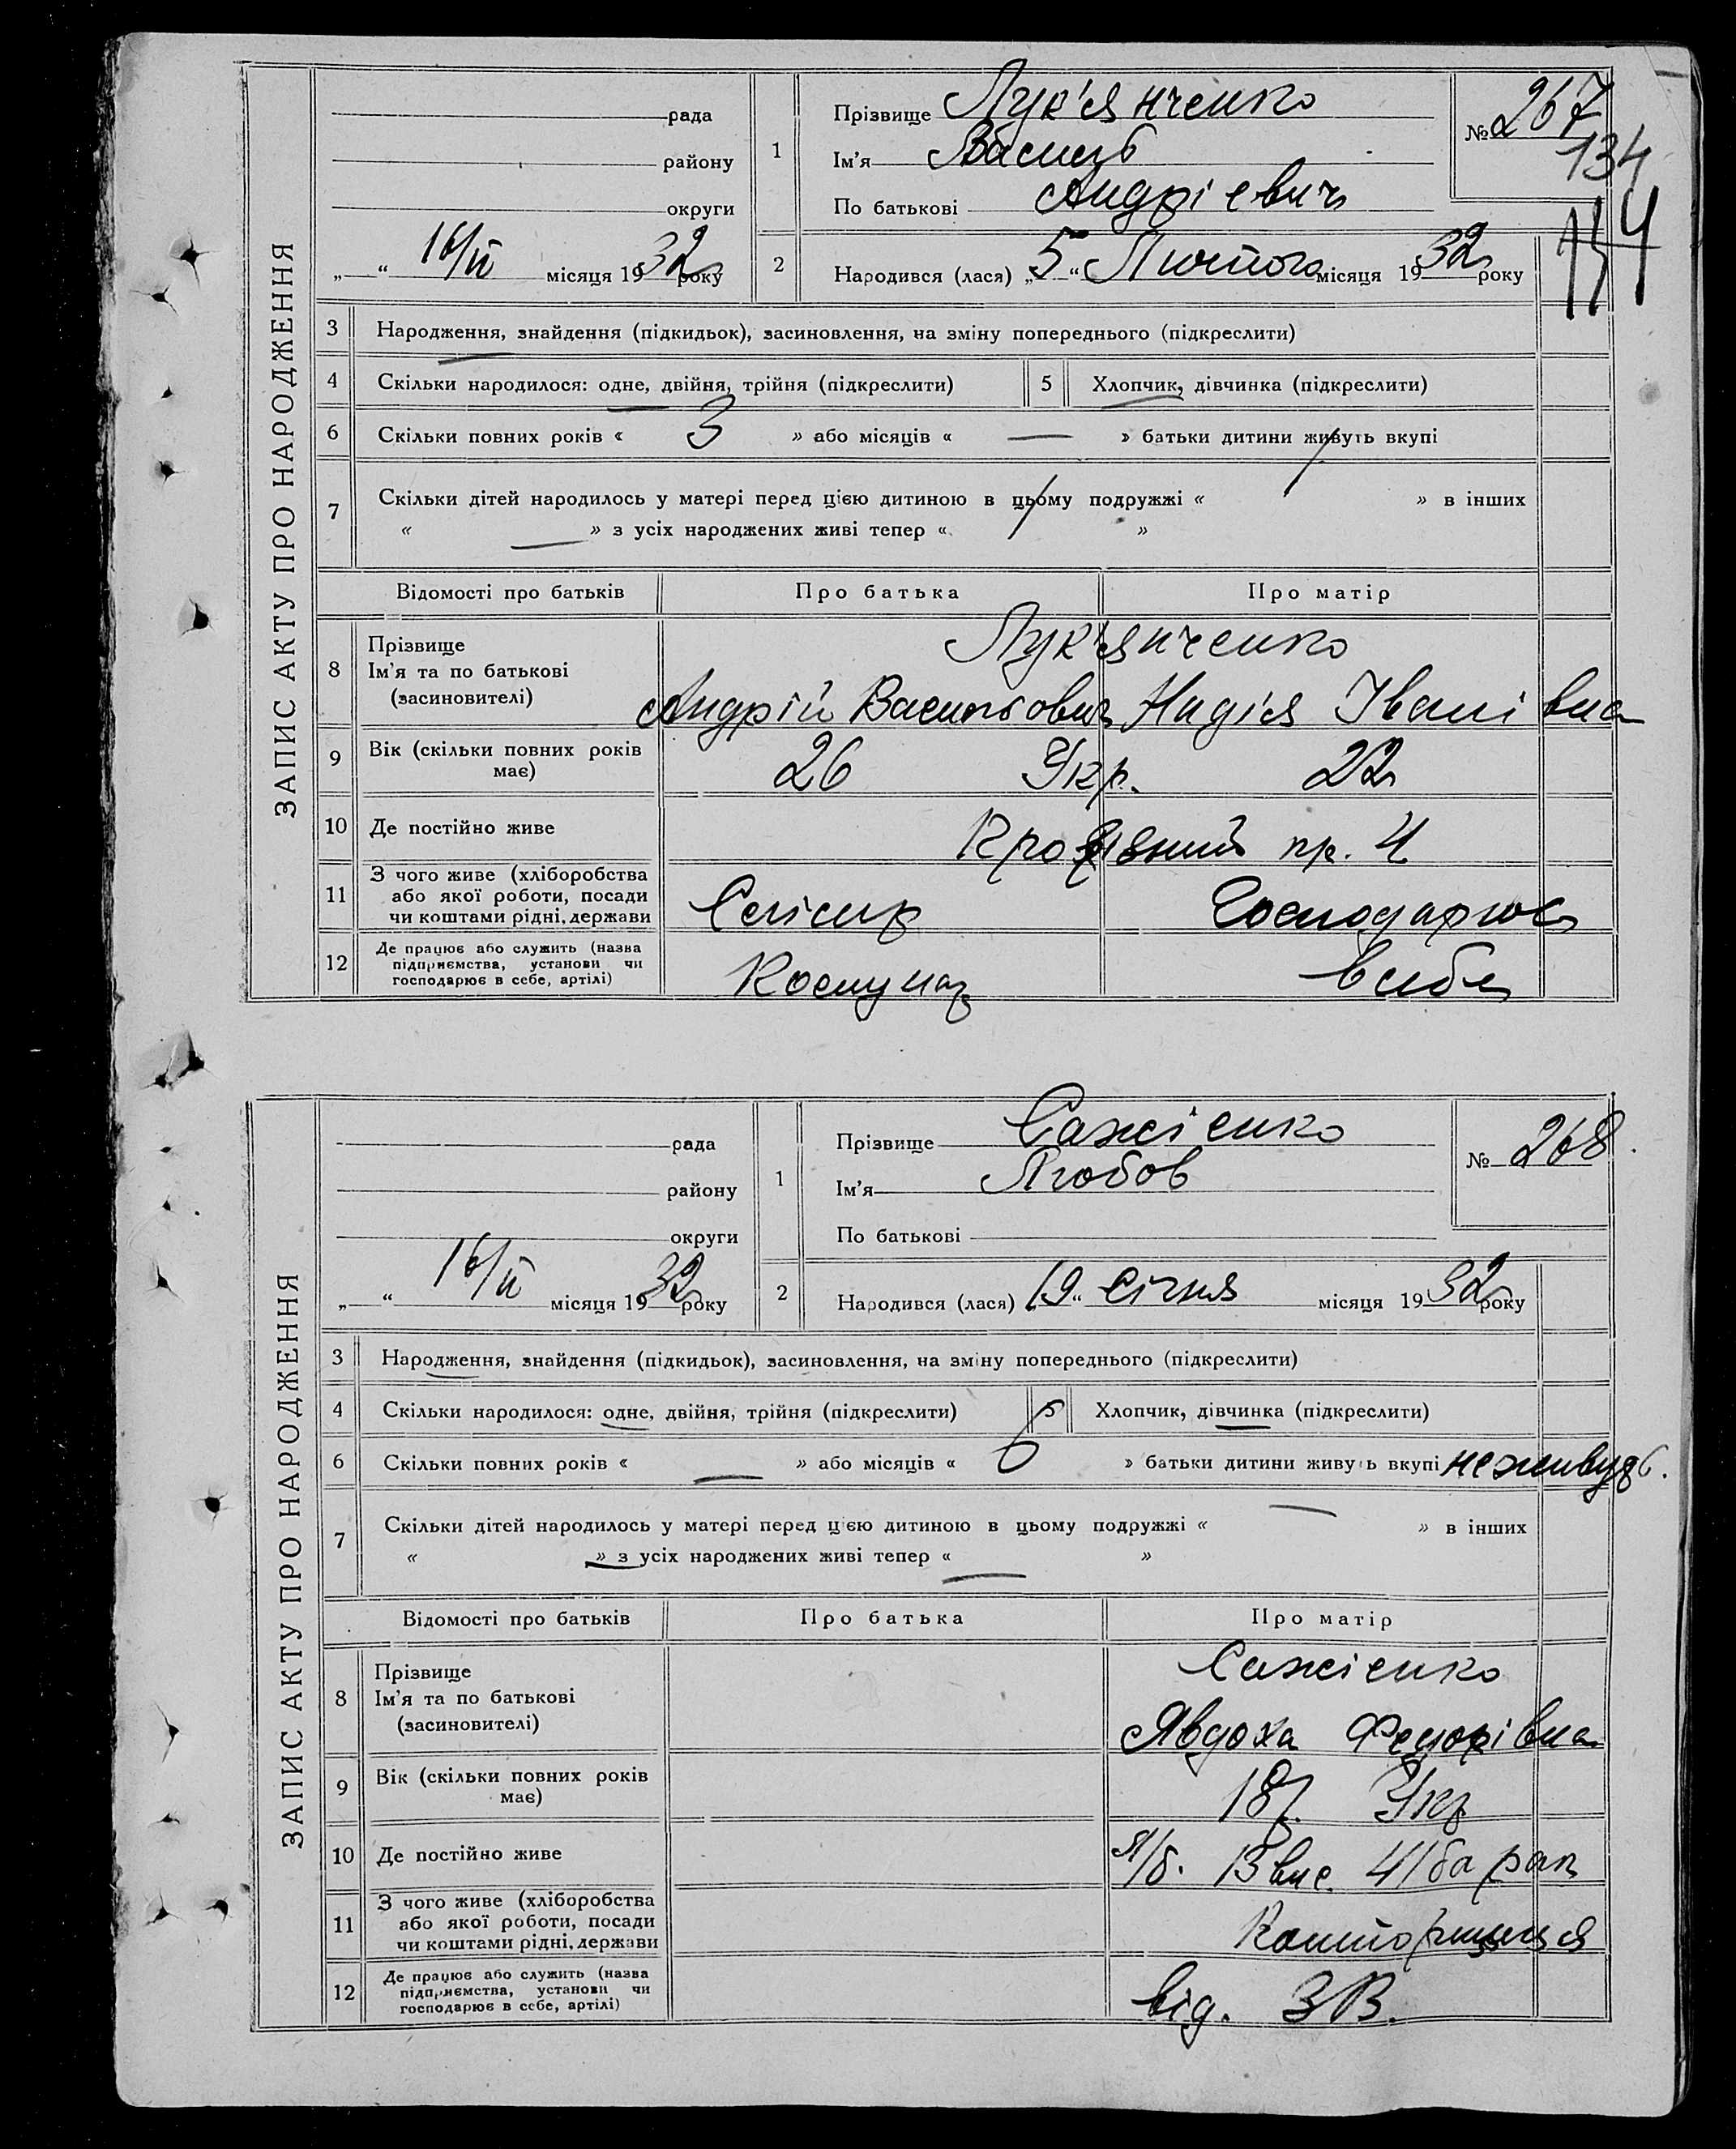 ЗАПИС АКТУ ПРО НАРОДЖЕННЯ
рада
району
округи
„ “ 16/II місяця 1932 року
1
Прізвище Лук'янченко
Ім'я Василь
По батькові Андрієвич
№ 267
134
134
2
Народився (лася) „5“ Лютого місяця 1932 року
3 Народження, знайдення (підкидьок), засиновлення, на зміну попереднього (підкреслити)
4 Скільки народилося: одне, двійня, трійня (підкреслити) 5 Хлопчик, дівчинка (підкреслити)
6 Скільки повних років « 3 » або місяців « — » батьки дитини живуть вкупі
7 Скільки дітей народилось у матері перед цією дитиною в цьому подружжі « 1 » в інших
« — » з усіх народжених живі тепер « 1 »
Відомості про батьків Про батька Про матір
8 Прізвище
Ім'я та по батькові
(засиновителі)
Лук'янченко
Андрій Васильович Надія Іванівна
9 Вік (скільки повних років має)
26 Укр. 22
10 Де постійно живе
пр. 4
11 З чого живе (хліборобства
або якої роботи, посади
чи коштами рідні, держави
Слісар Господарює
12 Де працює або служить (назва
підприємства, установи чи
господарює в себе, артілі)
в себе
ЗАПИС АКТУ ПРО НАРОДЖЕННЯ
рада
району
округи
„ “ 16/II місяця 1932 року
1
Прізвище Сажієнко
Ім'я Любов
По батькові
№ 268.
2
Народився (лася) 19“ Січня місяця 1932 року
3 Народження, знайдення (підкидьок), засиновлення, на зміну попереднього (підкреслити)
4 Скільки народилося: одне, двійня, трійня (підкреслити) 5 Хлопчик, дівчинка (підкреслити)
6 Скільки повних років « — » або місяців « 6 » батьки дитини живуть вкупі не живуть.
7 Скільки дітей народилось у матері перед цією дитиною в цьому подружжі « — » в інших
« — » з усіх народжених живі тепер « — »
Відомості про батьків Про батька Про матір
8 Прізвище
Ім'я та по батькові
(засиновителі)
Сажієнко
Явдоха Федорівна
9 Вік (скільки повних років має)
18р. Укр
10 Де постійно живе
Л/б. 13 вис. 41 барак
11 З чого живе (хліборобства
або якої роботи, посади
чи коштами рідні, держави
12 Де працює або служить (назва
підприємства, установи чи
господарює в себе, артілі)
від. ЗВ.